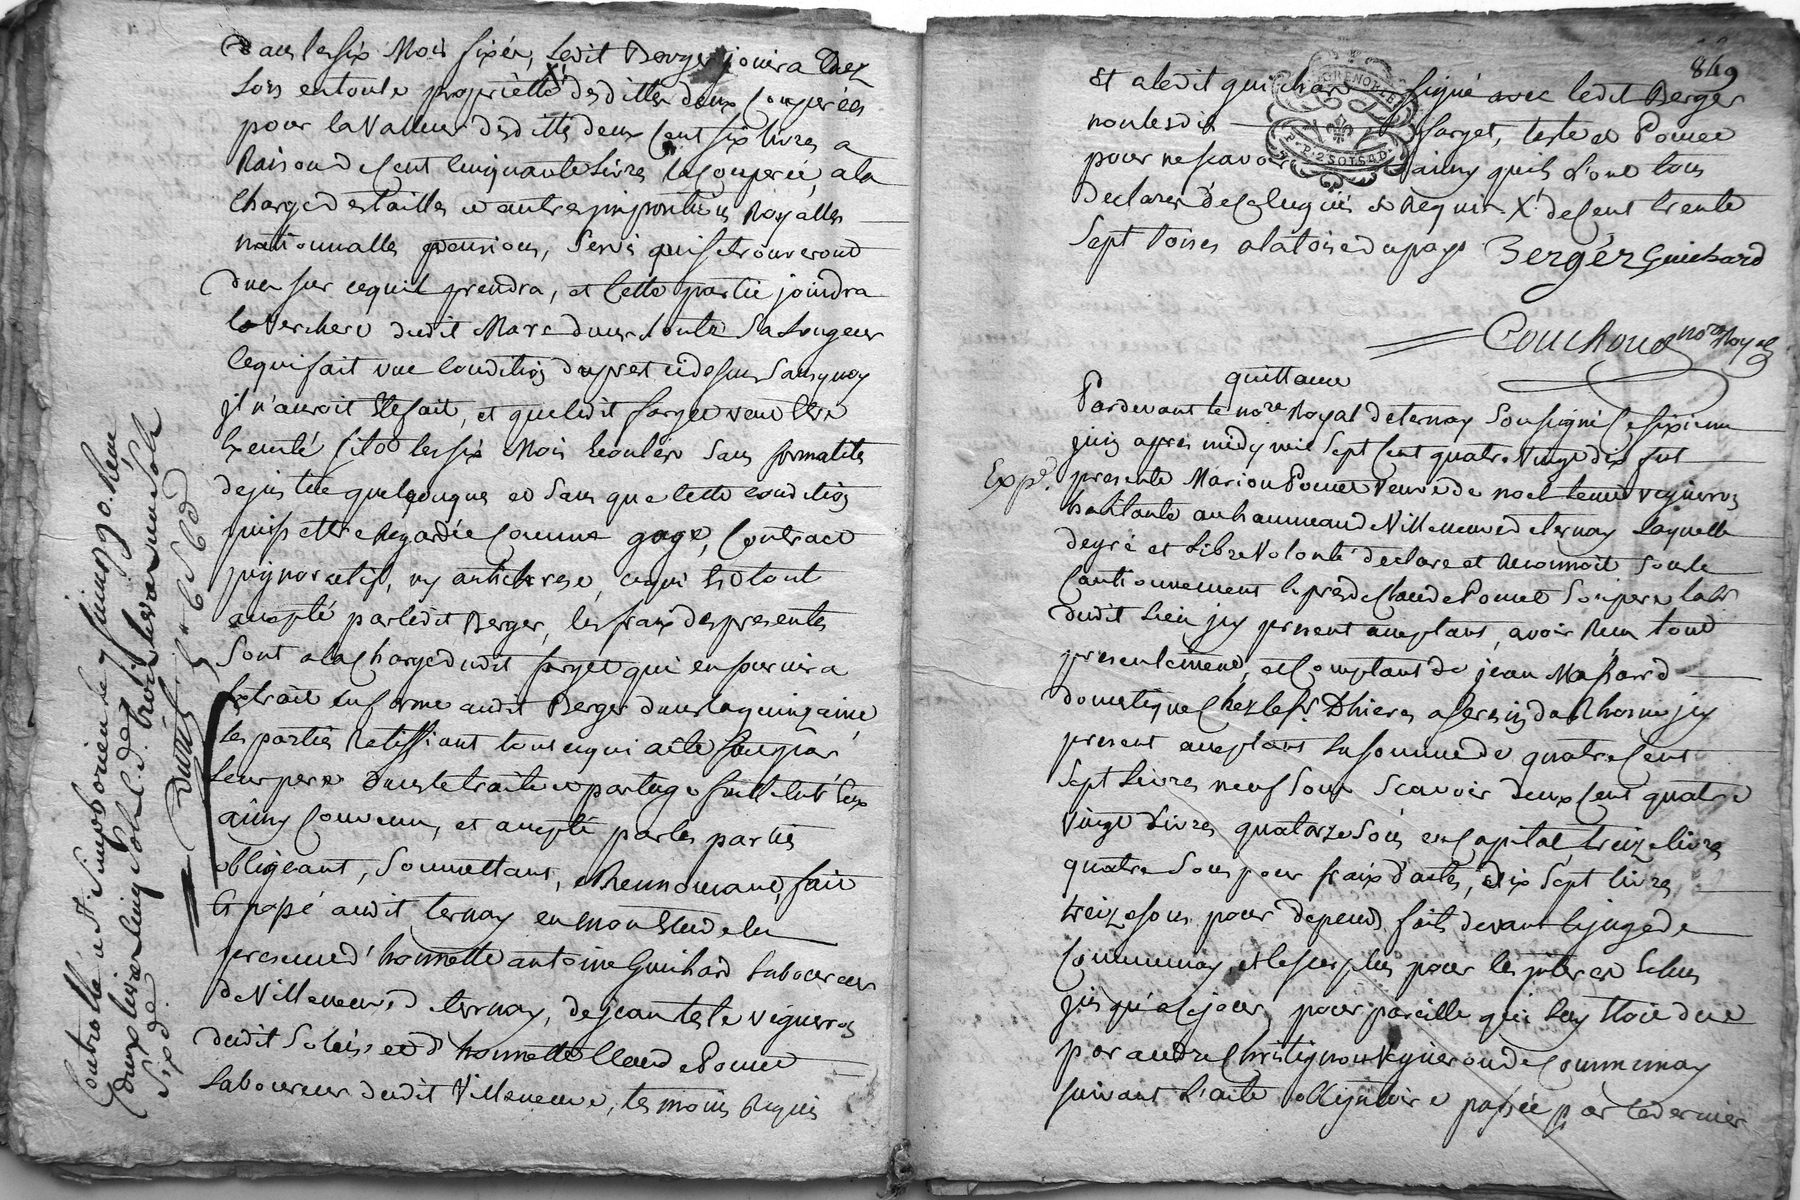 dans les six mois fixés, ledit Berger jouira dez
lors en toute propriètté X desdittes deux Couperées
pour la valleur desdittes deux Cent six livres a
Raison de Cent Cinquante Livres la Couperée, a la
Charge des tailles et autres impositions Royalles
nationnalles pensions, servis qui se trouveront
dues sur ce quil prendra, et Cette partie joindra
le verchere dudit Marc dans toute sa Longueur
ce qui fait une Condition du pret cidessus sans quoy
il n'auroit été fait, et que ledit farget veut être
Executé sitot les six mois Ecoulés sans formalités
de justice quelquonques et sans que cette condition
puiss ettre Regardée Comme gage, Contract
pignoratif, ny antichrese, ce qui Est tout
accepté par ledit Berger, les fraix des presentes
Sont a la Charge dudit farget qui en fournira
Extrait en forme audit Berger dans la quinzaine
les parties Ratiffiant tout ce qui a été fait par
leur pere dans le traité et partage fait entr'eux
ainsy Convenu, et accepté par les parties
obligeant, soumettant, et Renonceant, fait
et passé audit ternay en mon Etude en
presence d'honnette antoine Guichard Laboureur
de Villeneuve d ternay, de jean teste vigneron
dudit Solaise et d'honnette Claude Pomet
Laboureur dudit Villeneuve, temoins Requis
Controllé a St. Simphorien le 7 juin 1790. Reçu
deux livres cinq sols
six d.
849
Et a ledit guichard signé avec ledit Berger
non lesdits farget, teste et Pomet
pour ne scavoir ainsy quils L'ont tous
Declarez de Ce Enquis et Requis X de Cent trente
Sept toises a la toise du pays Bergér Guichard
Couchoud nore Royal
quittance
Pardevant le nore Royal de ternay Soussigné Ce sixieme
juin après midy mil sept Cent quatre vingt dix fut
Expé. presente Marion Pomet veuve de noel vigneron
habitante au hammeau de Villeneuve de ternay Laquelle
de gré et Libre volonté declare et Reconnoit sous le
Cautionnement de Claude Pomet son pere labr
dudit Lieu icy present acceptant, avoir Reçu tout
presentement, et Comptant de jean Massard
domestique Chez le Sr. Dhieres a Serezin du Rhosne icy
present acceptant la somme de quatre Cent
Sept Livres neuf sous scavoir deux Cent quatre
vingt Livres quatorze sols en Capital, treize livres
quatre sous pour fraix d'actes, dix sept livres
treize sous pour depend fait devant le juge de
Communay et le surplus pour les interets Echus
jusqu'a Ce jour, pour pareille qui luy ettoit due
par andré Christignon vigneron de Communay
suivant L'acte obligatoire passée par ce dernier